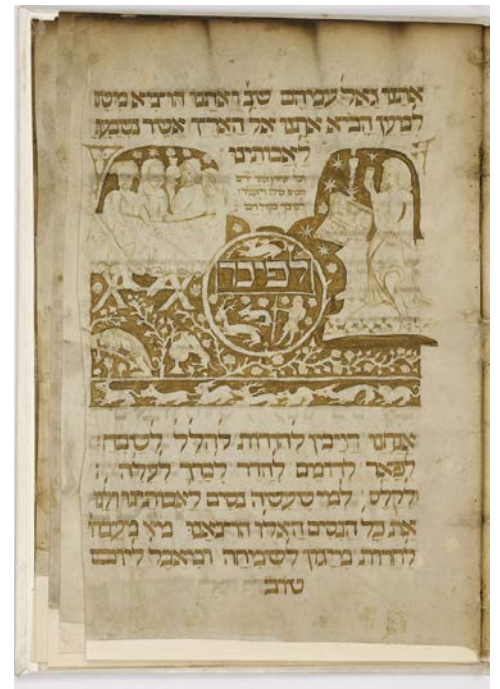 אתנו גאל עמיהם שנ ואתנו הוציא משם
למען הביא אתנו אל הארץ אשר נשבע
לאבותינו
לפיכך
אנחנו חייבין להודות להלל לשבח
לפאר לרומם להדר לברך לעלה
ולקלס למי שעשה נסים לאבותינו ולנו
את כל הנסים האלו הוציאנו
לחרות מיגון לשמחה ומאבל ליום
טוב